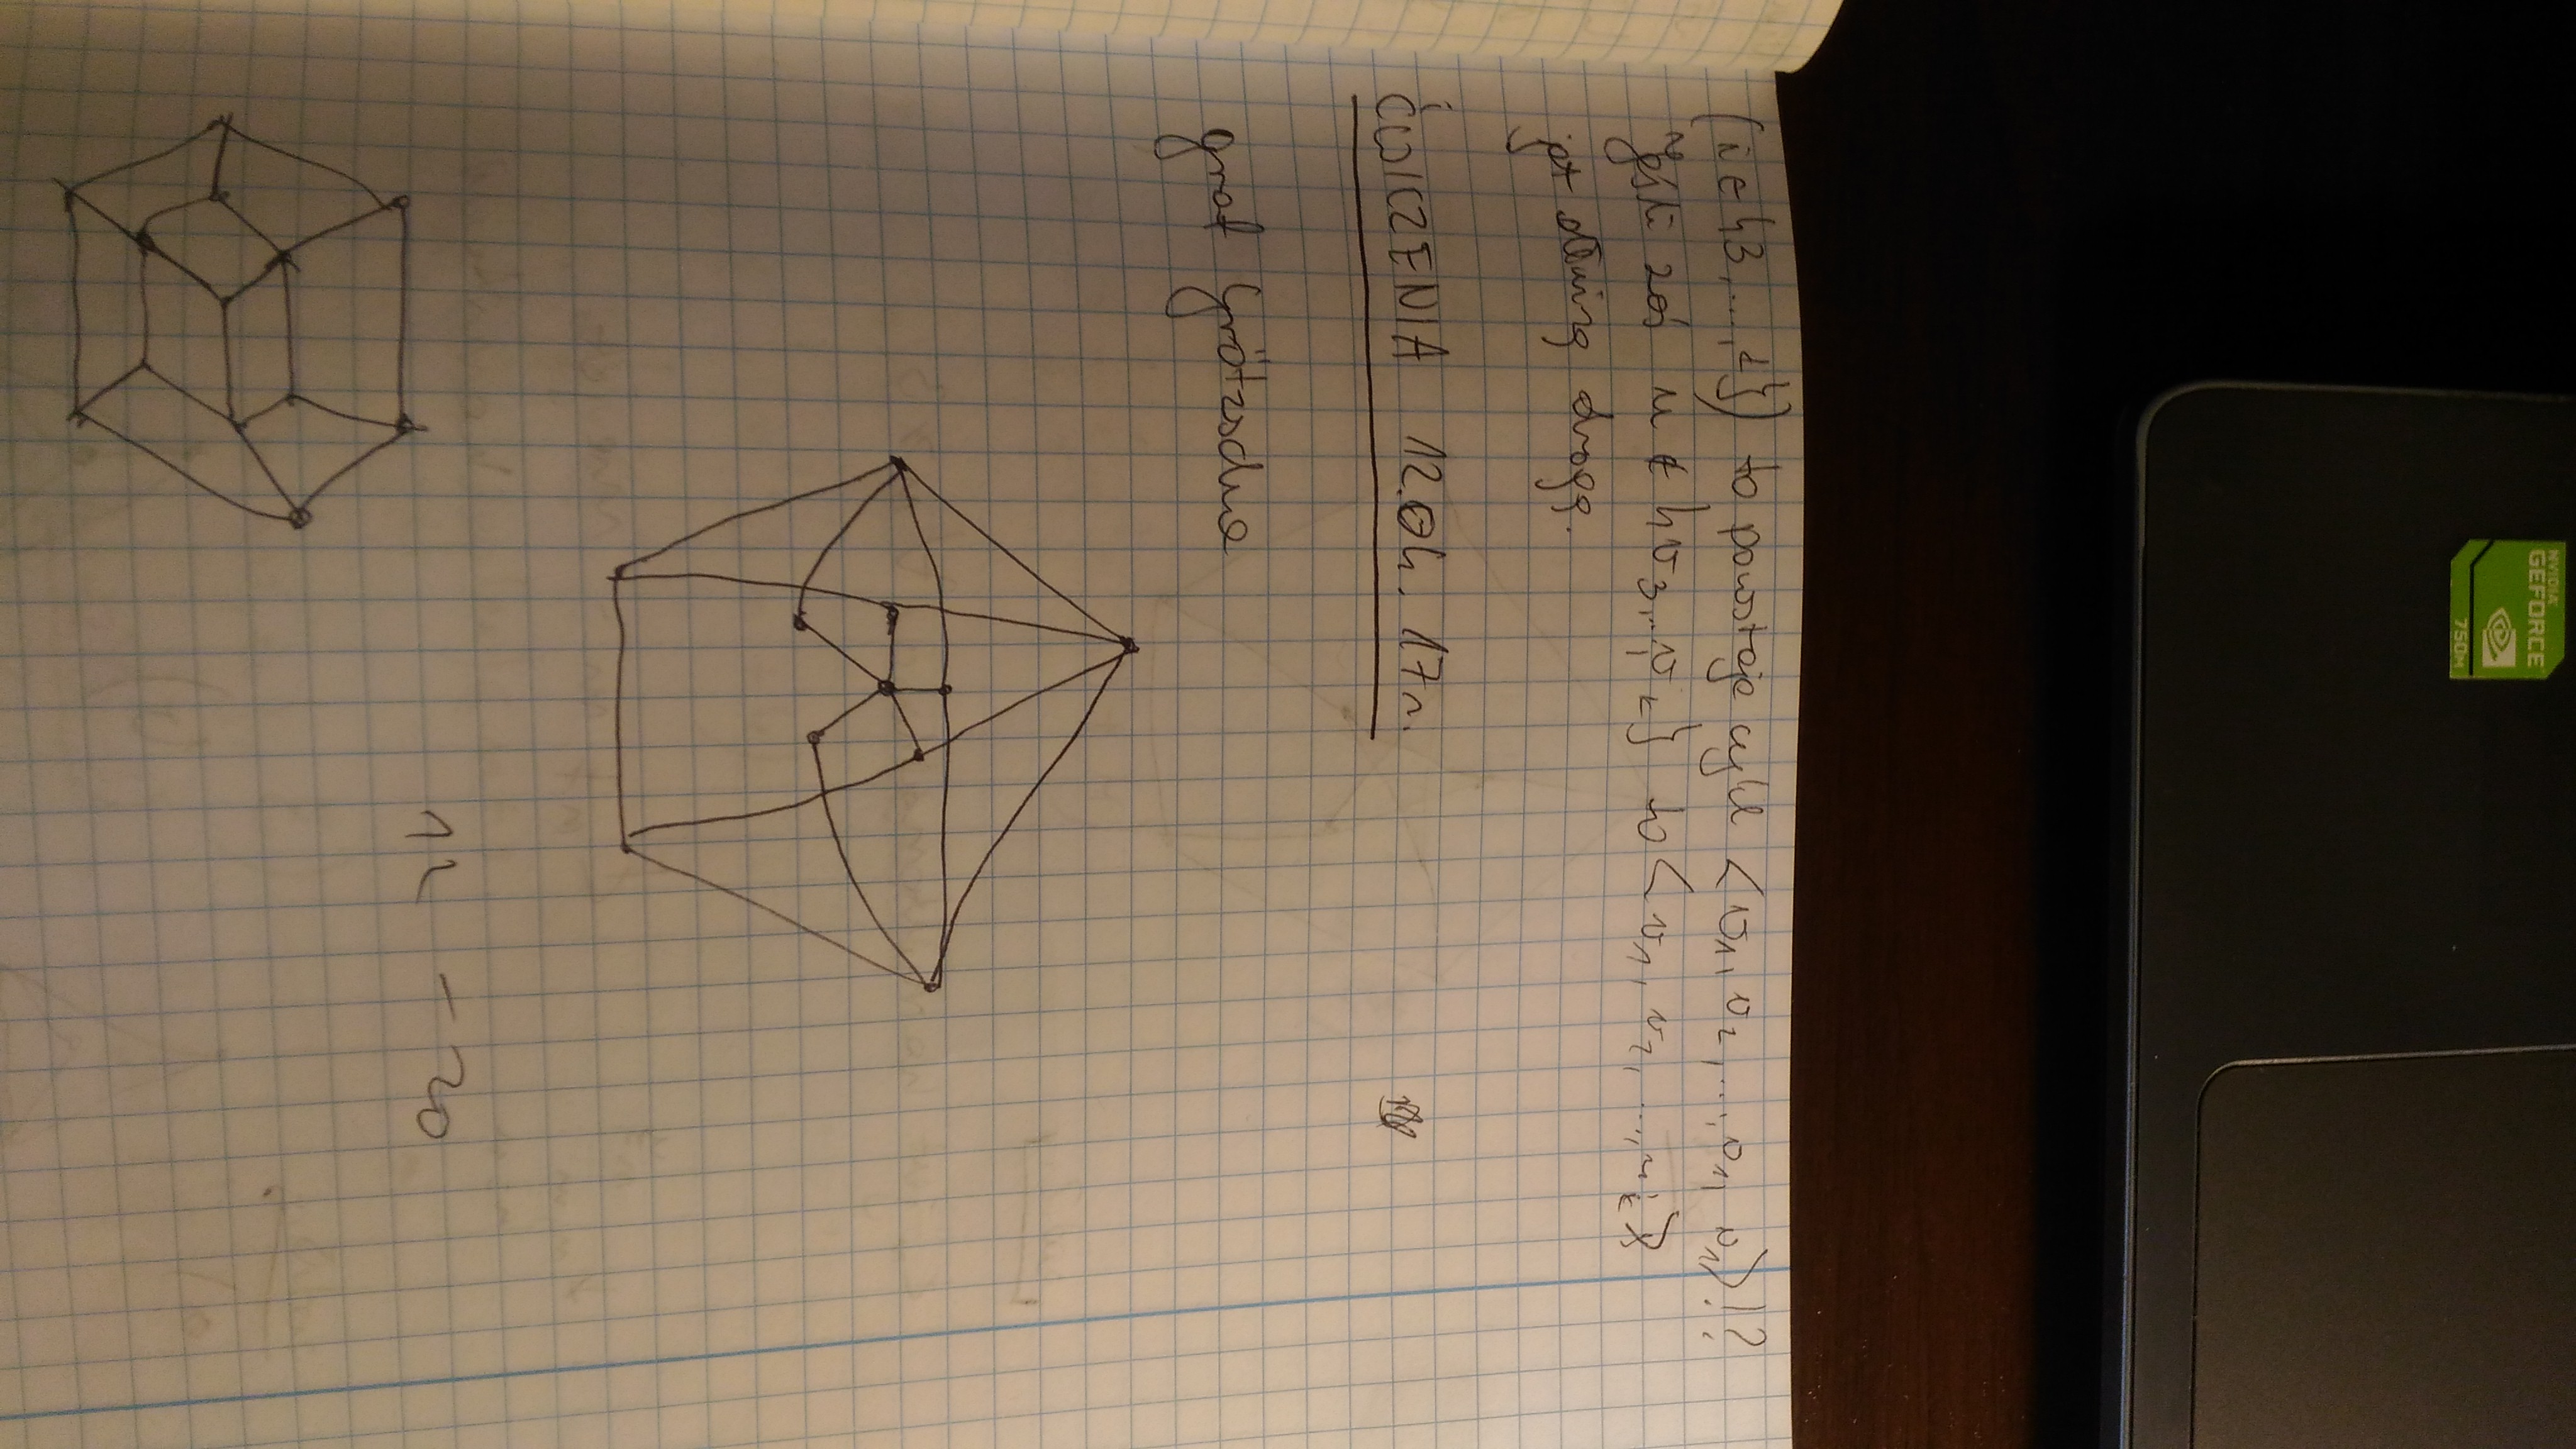 NVIDIA
GEFORCE
750M
(i ∈ {3,...,k}) to powstaje cykl <v1, v2, ..., v1, v1>!?
Jeśli zaś u ∉ {v3,...,vk} to <v1, v2, ...,
jet dłuższą drogą.
ĆWICZENIA 12.04.17r.
graf Grötzscha
12 - 20